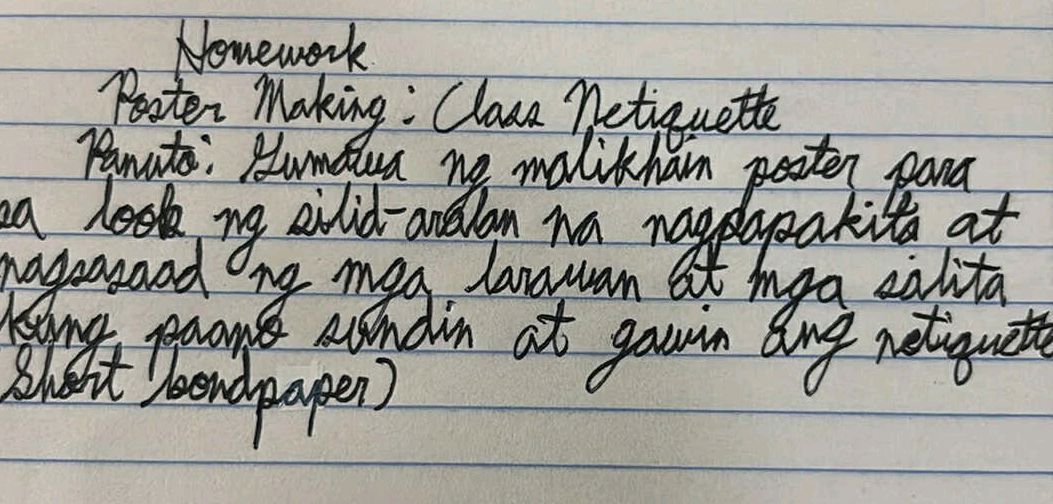 Homework
Poster Making: Class Netiquette
Panuto: Gumawa ng malikhain poster para
sa loob ng silid-aralan na nagpapakita at
nagsasaad ng mga larawan at mga salita
kung paano sundin at gawin ang netiquette
Short bondpaper)